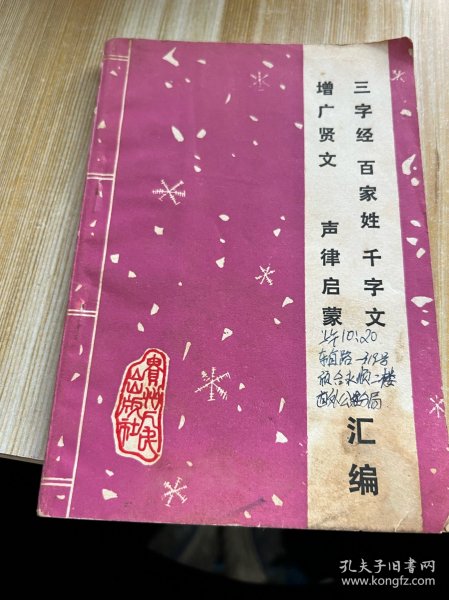 三字经 百家姓 千字文
增广贤文 声律启蒙
汇编
上午10:20
二楼
贵州人民
出版社
孔夫子旧书网
www.kongfz.com